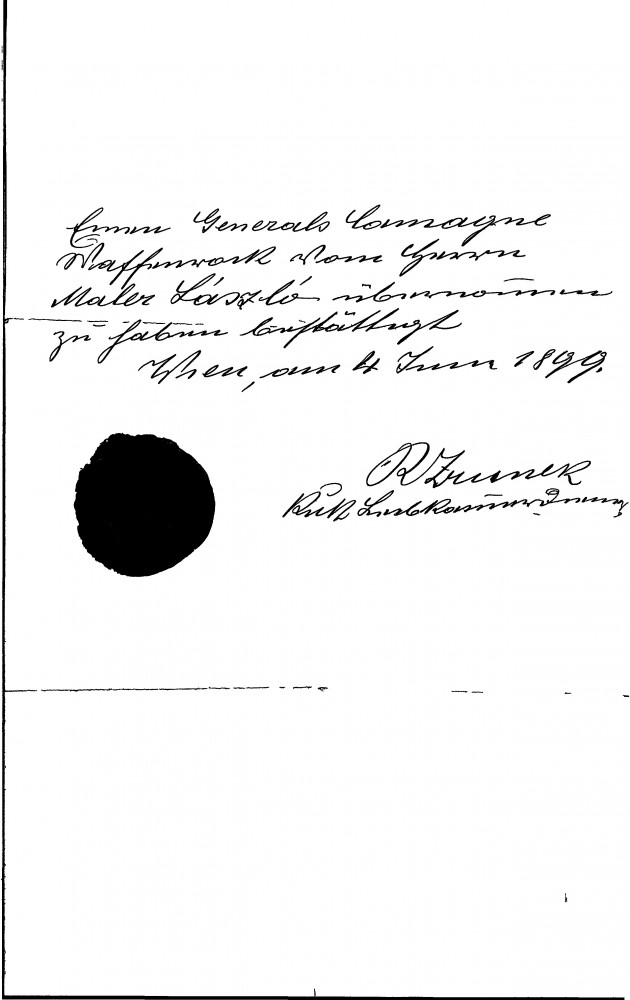 Einen Generals Camagne
Waffenrock vom Herrn
Maler László übernom̅en
zu haben bestättigt
Wien, am 4 Juni 1899.
R Zrunek
KuK Leibkam̅erdiener